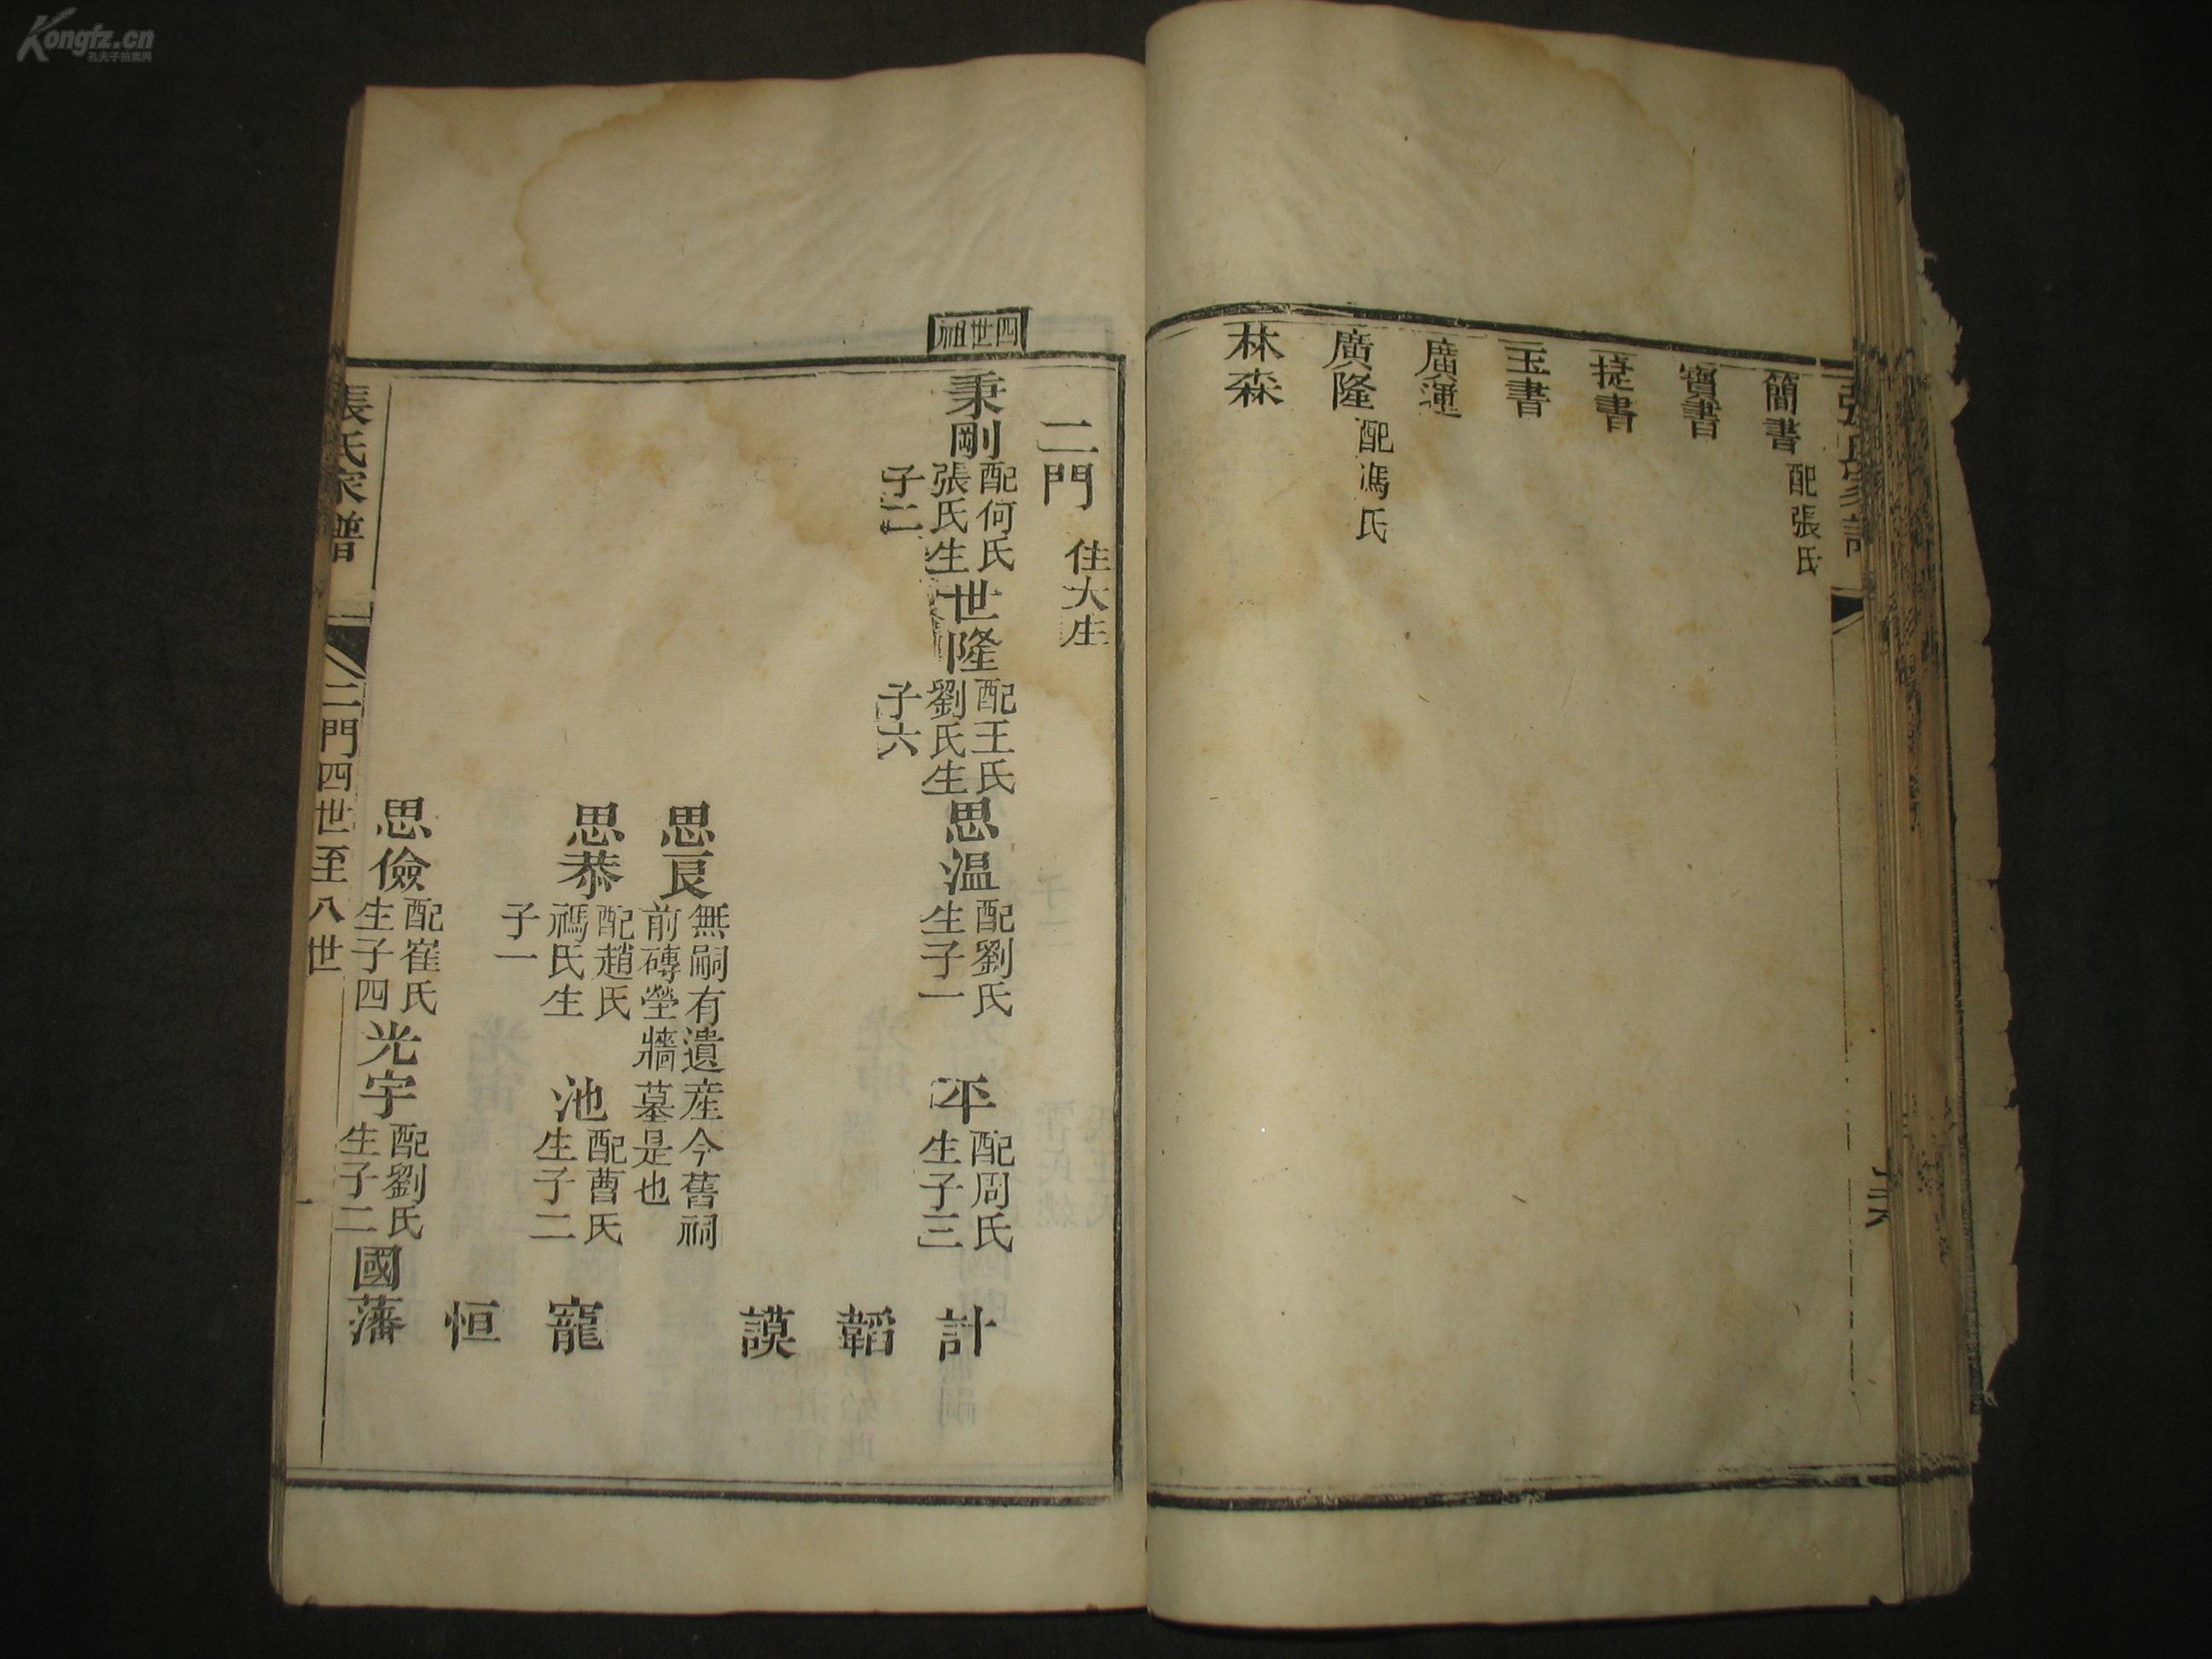 Kongfz.cn
孔夫子拍卖网
簡書 配張氏
寶書
捷書
玉書
廣運
廣隆 配馮氏
林森
四世祖
二門 住大生
秉剛 配何氏張氏生子二 世隆 配王氏劉氏生子六 思温 配劉氏生子一 平 配周氏生子三 計
韜
謨
思良 無嗣有遺産今舊祠前磚塋牆墓是也
思恭 配趙氏禡氏生子一 池 配曹氏生子二 寵
恒
思儉 配崔氏生子四 光宇 配劉氏生子二 國藩
張氏家譜 二門四世至八世 一